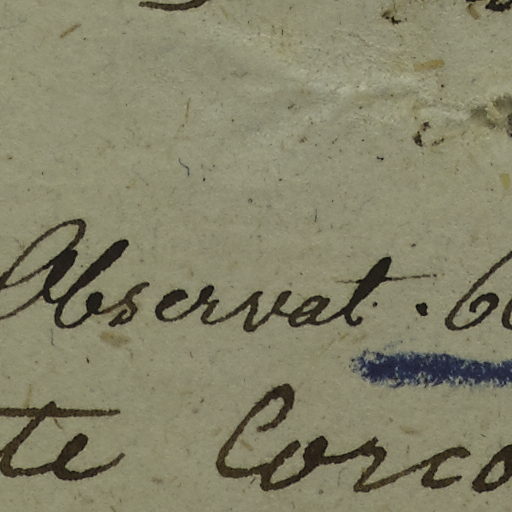 Observat. 6
te Corco